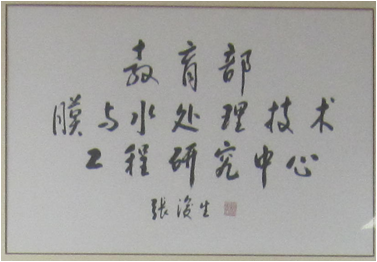 教育部
膜与水处理技术
工程研究中心
张浚生